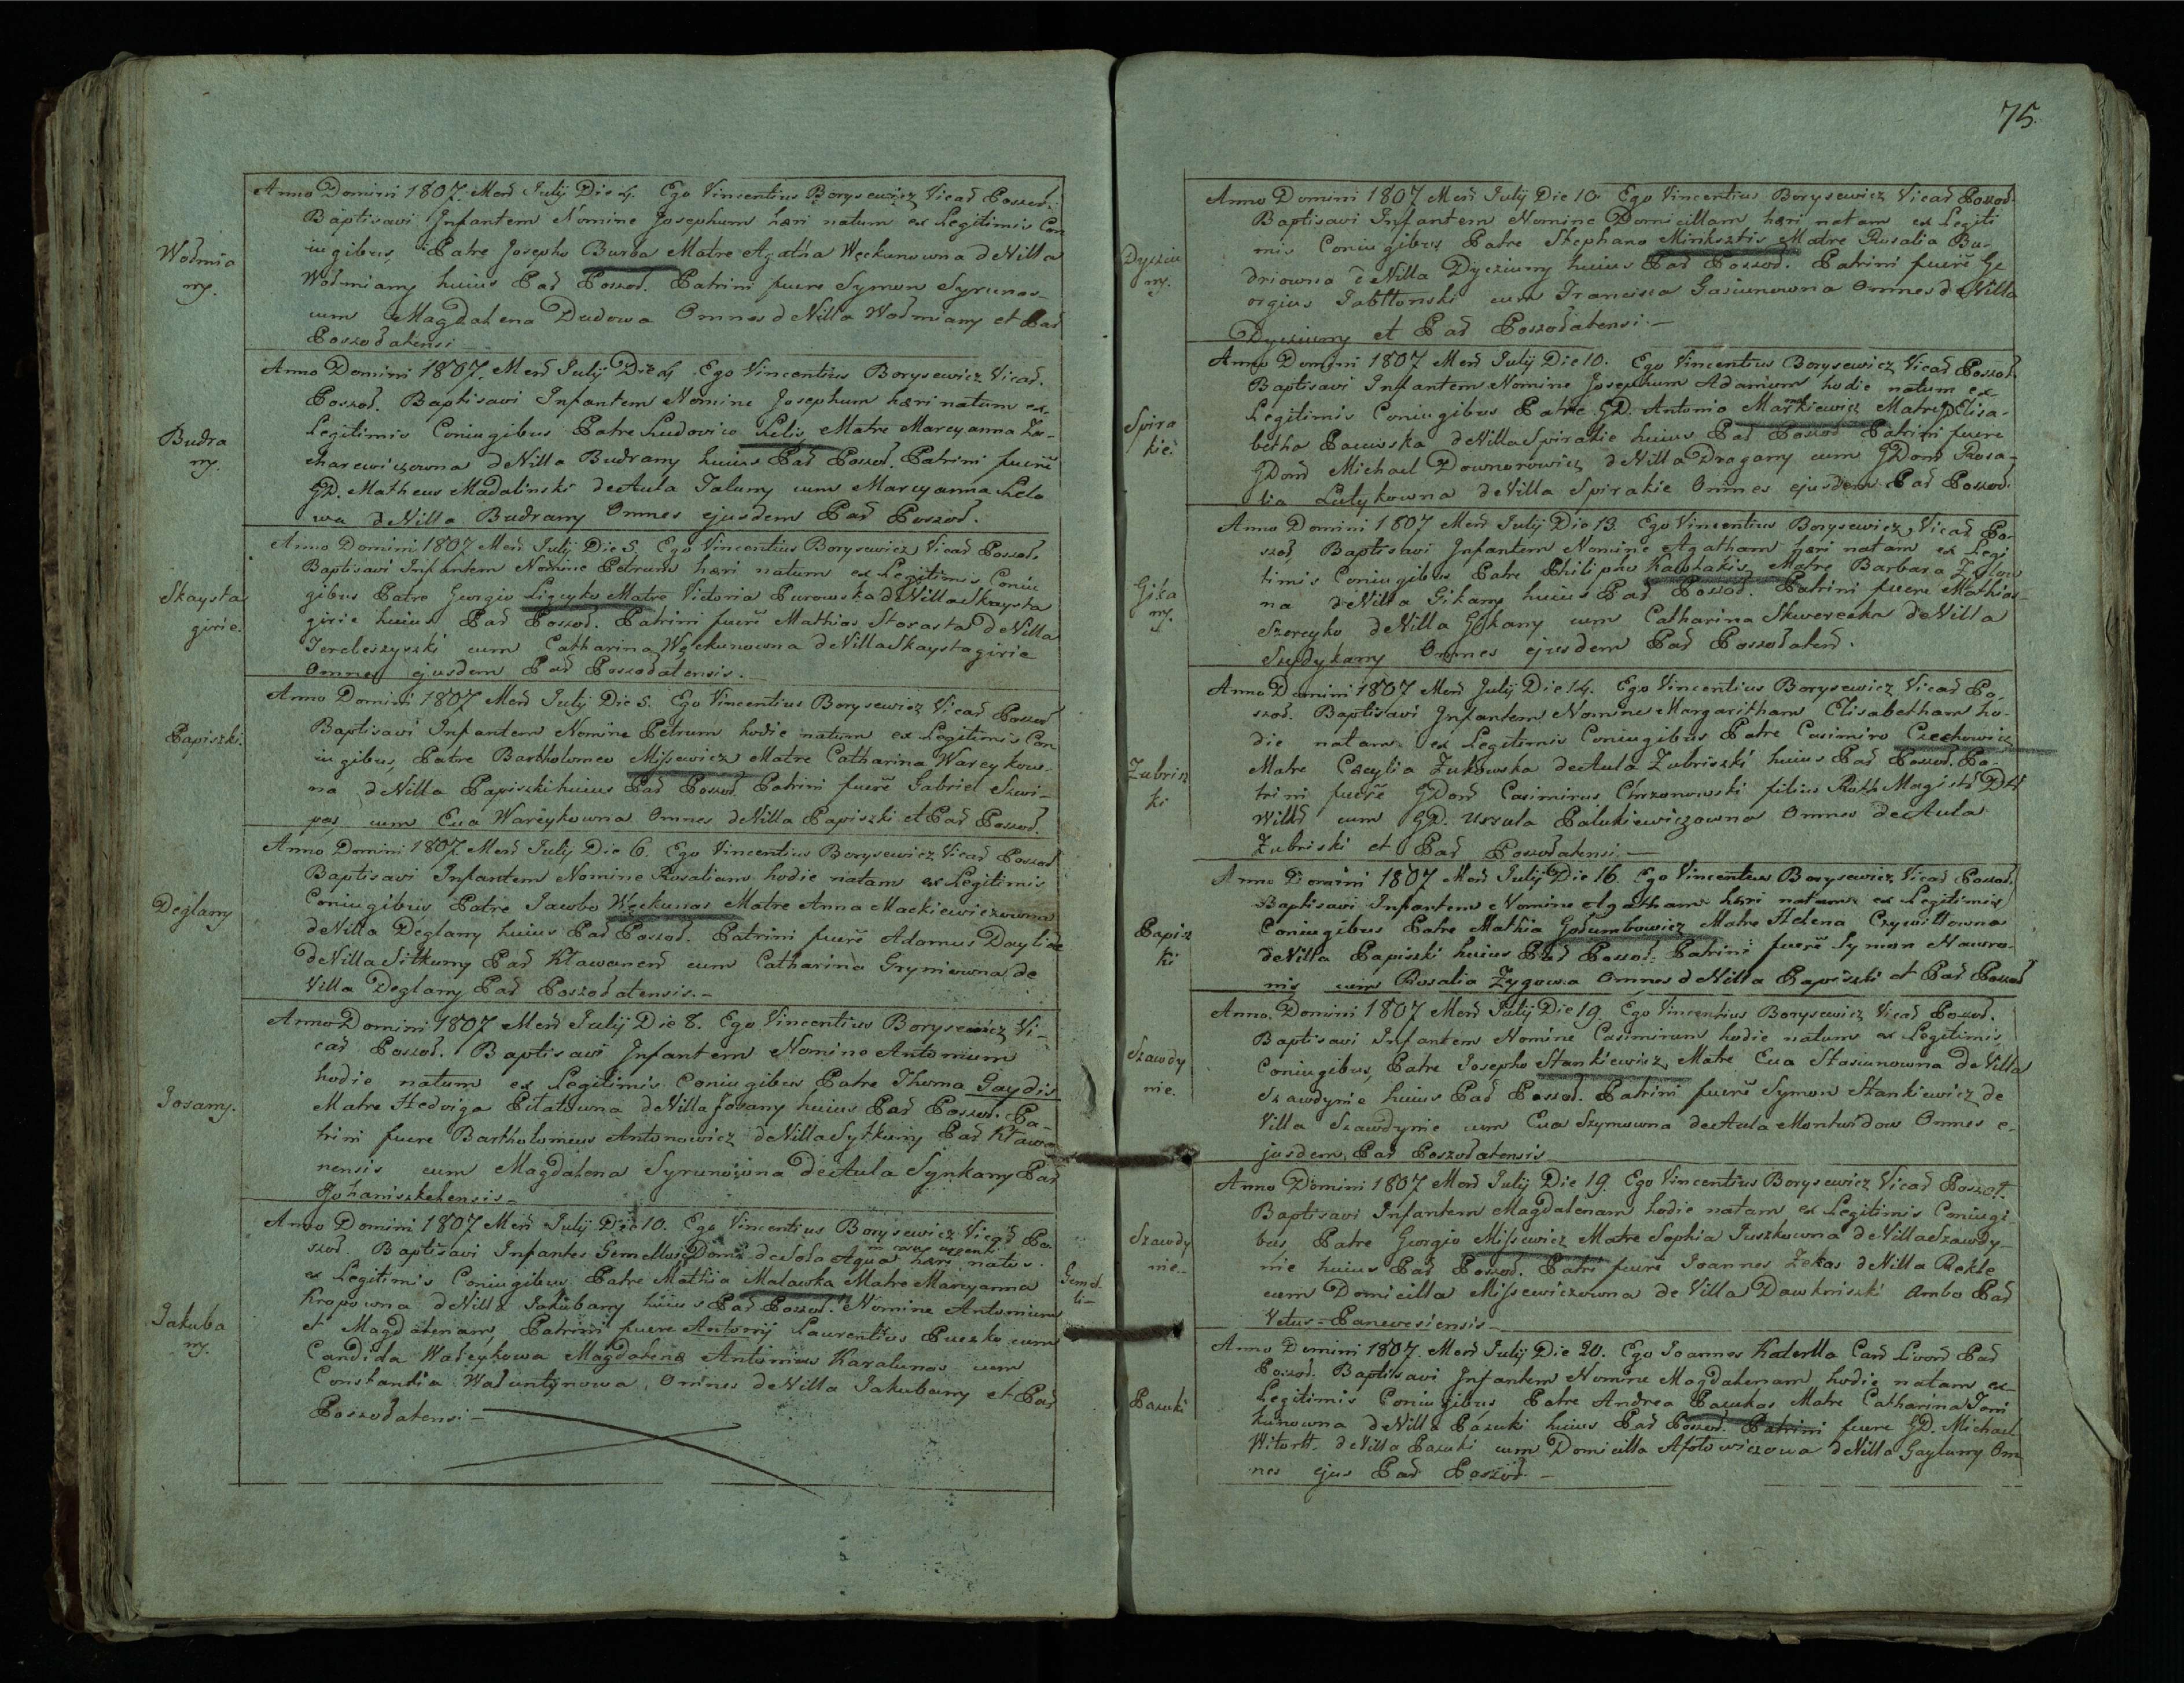 Wołmia
ny.
Anno Domini 1807. Meñ Julij Die 4. Ego Vincentius Borysewicz Vicař Poszoł.
Baptisavi Infantem Nomine Josephum hæri natum ex Legitimis Con
iugibus, Patre Josepho Burba Matre Agatha Węckunowna de Villa
Wołmiany huius Pař Poszoł. Patrini fuere Symon Syrunas
cum Magdalena Dudowa Omnes de Villa Wołmiany et Pař
Poszołatensi
Budra
ny.
Anno Domini 1807. Meñ Julij Die 4. Ego Vincentius Borysewicz Vicař.
Poszoł. Baptisavi Infantem Nomine Josephum hæri natum ex
Legitimis Coniugibus Patre Ludovico Lelis Matre Marcyanna Za-
charewiczowna de Villa Budrany huius Pař Poszoł. Patrini fuere
GD. Matheus Madalinski de Aula Taluny cum Marcyanna Lelo
wa de Villa Budrany Omnes ejusdem Pař Poszoł.
Skaysta
girie.
Anno Domini 1807 Meñ Julij Die 5. Ego Vincentius Borysewicz Vicař Poszoł.
Baptisavi Infantem Nomine Petrum hæri natum ex Legitimis Coniu
gibus Patre Georgio Ligeyko Matre Victoria Purowska de Villa Skaysta
girie huius Pař Poszoł. Patrini fuere Mathias Storasta de Villa
Jereleszyszki cum Catharina Węckunowna de Villa Skaystagirie
Omnes ejusdem Pař Poszołatensis.
Papiszki.
Anno Domini 1807 Meñ Julij Die 5. Ego Vincentius Borysewicz Vicař Poszoł
Baptisavi Infantem Nomine Petrum hodie natum ex Legitimis Con
iugibus, Patre Bartholomeo Missewicz Matre Catharina Wareykow-
na de Villa Papiszki huius Pař Poszoł. Patrini fuere Gabriel Szwi-
pas, cum Eva Wareykowna Omnes de Villa Papiszki et Pař Poszoł.
Deglany
Anno Domini 1807 Meñ Julij Die 6. Ego Vincentius Borysewicz Vicař Poszoł
Baptisavi Infantem Nomine Rosaliam hodie natam ex Legitimis
Coniugibus Patre Jacobo Węckunas Matre Anna Mackiewiczowna
de Villa Deglany huius Pař Poszoł. Patrini fuere Adamus Daylide
de Villa Sitkuny Pař Kławaneñ cum Catharina Gryniewna de
Villa Deglany Pař Poszołatensis.-
Josany.
Anno Domini 1807 Meñ Julij Die 8. Ego Vincentius Borysewicz Vi-
cař Poszoł. Baptisavi Infantem Nomine Antonium
hodie natum ex Legitimis Coniugibus Patre Thoma Gaydis
Matre Hedviga Pilatowna de Villa Josany huius Pař Poszoł. Pa-
trini fuere Bartholomeus Antonowicz de Villa Sytkuny Pař Kława
nensis cum Magdalena Syrunowna de Aula Synkany Pař
Johaniszkelensis-
Jakuba
ny.
Anno Domini 1807 Meñ Julij Die 10. Ego Vincentius Borysewicz Vicař Po-
szoł. Baptisavi Infantes Gemellos Domi de Sola Aqua in casu urgenti hæri natos
ex Legitimis Coniugibus Patre Mathia Malawka Matre Maryanna
Kropowna de Villa Jakubany huius Pař Poszoł. Nomine Antonium
et Magdalenam, Patrini fuere Antonij Laurentius Puczko cum
Candida Wareykowa Magdalena Antonius Karalunas cum
Constantia Waluntynowa, Omnes de Villa Jakubany et Pař
Poszołatensi-
Gemel
li-
75
Dyciu
ny.
Anno Domini 1807 Meñ Julij Die 10. Ego Vincentius Borysewicz Vicař Poszoł.
Baptisavi Infantem Nomine Domicillam hæri natam ex Legiti
mis Coniugibus Patre Stephano Minksztis Matre Rosalia Bu-
driowna de Villa Dyciuny huius Pař Poszoł. Patrini fuere Ge
orgius Jabłłonski cum Francisca Gasiunowna Omnes de Villa
Dyciuny et Pař Poszołatensi.-
Spira
kie.
Anno Domini 1807 Meñ Julij Die 10. Ego Vincentius Borysewicz Vicař Poszoł.
Baptisavi Infantem Nomine Josephum Adamum hodie natum ex
Legitimis Coniugibus Patre GD. Antonio Markiewicz Matre GD Elisa-
betha Pacewska de Villa Spirakie huius Pař Poszoł Patrini fuere
GDoñ Michael Downorowicz de Villa Dragany cum GDoñ Rosa-
lia Lutykowna de Villa Spirakie Omnes ejusdem Pař Poszoł.
Gika
ny.
Anno Domini 1807 Meñ Julij Die 13. Ego Vincentius Borysewicz, Vicař Po-
szoł, Baptisavi Infantem Nomine Agatham hæri natam ex Legi
timis Coniugibus Patre Philipho Kawhakis, Matre Barbara Zyłow
na de Villa Gikany huius Pař Poszoł. Patrini fuere Mathias
Szoreyko de Villa Gikany cum Catharina Skwerecka de Villa
Szydykany Omnes ejusdem Pař Poszołateñ.
Zubrisz
ki
Anno Domini 1807 Meñ Julij Die 14. Ego Vincentius Borysewicz Vicař Po-
szoł. Baptisavi Infantem Nomine Margaritham Elisabetham ho-
die natam ex Legitimis Coniugibus Patre Casimiro Czechowicz
Matre Cæcylia Zukowska de Aula Zubriszki huius Pař Poszoł. Pa-
trini fuere GDoñ Casimirus Chrzonowski filius Roth Magistri Dtt
Willñ cum GD. Ursula Palukiewiczowna Omnes de Aula
Zubriski et Pař Poszołatensi.-
Papisz
ki
Anno Domini 1807 Meñ Julij Die 16. Ego Vincentius Borysewicz Vicař Poszoł.
Baptisavi Infantem Nomine Agatham hæri natam ex Legitimis
Coniugibus Patre Mathia Gołumbowicz Matre Helena Czywillowna
de Villa Papiszki huius Pař Poszoł. Patrini fuere Symon Nawro-
nis cum Rosalia Zygowa Omnes de Villa Papiszki et Pař Poszoł
Szawdy
nie.
Anno Domini 1807 Meñ Julij Die 19. Ego Vincentius Borysewicz Vicař Poszoł.
Baptisavi Infantem Nomine Casimirum hodie natum ex Legitimis
Coniugibus, Patre Josepho Stankiewicz, Matre Eva Stasiunowna de Villa
Szawdynie huius Pař Poszoł. Patrini fuere Symon Stankiewicz de
Villa Szawdynie cum Eva Szymowna de Aula Montwidow Omnes e-
jusdem Pař Poszołatensis
Szawdy
nie-
Anno Domini 1807 Meñ Julij Die 19. Ego Vincentius Borysewicz Vicař Poszoł.
Baptisavi Infantem Magdalenam hodie natam ex Legitimis Coniugi
bus Patre Georgio Missewicz Matre Sophia Juszkowna de Villa Szawdy-
nie huius Pař Poszoł. Patri fuere Joannes Zekas de Villa Rekle
cum Domicilla Missewiczowna de Villa Dawkniszki Ambo Pař
Vetus=Ponevesiensis-
Pazuki
Anno Domini 1807. Meñ Julij Die 20. Ego Joannes Katerlla Cañ Livoñ Pař
Poszoł. Baptisavi Infantem Nomine Magdalenam hodie natam ex
Legitimis Coniugibus Patre Andrea Pazukas Matre Catharina Joni
kunowna de Villa Pazuki huius Pař Poszoł. Patrini fuere GD. Michael
Witortt. de Villa Pazuki cum Domicilla Afłtowiczowa de Villa Gayluny Om
nes ejus Pař Poszoł.-